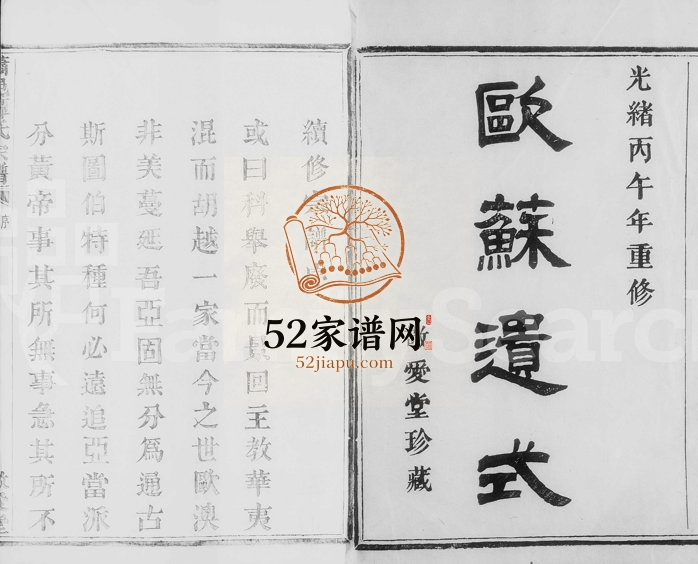 光緒丙午年重修
歐蘇遺式
愛堂珍藏
續修
或曰科舉廢而景回王教華夷
混而胡越一家當今之世歐澳
非美蔓延吾亞固無分爲通古
斯圖伯特種何必遠追亞當派
分黃帝事其所無事急其所不
52家谱网
52jiapu.com